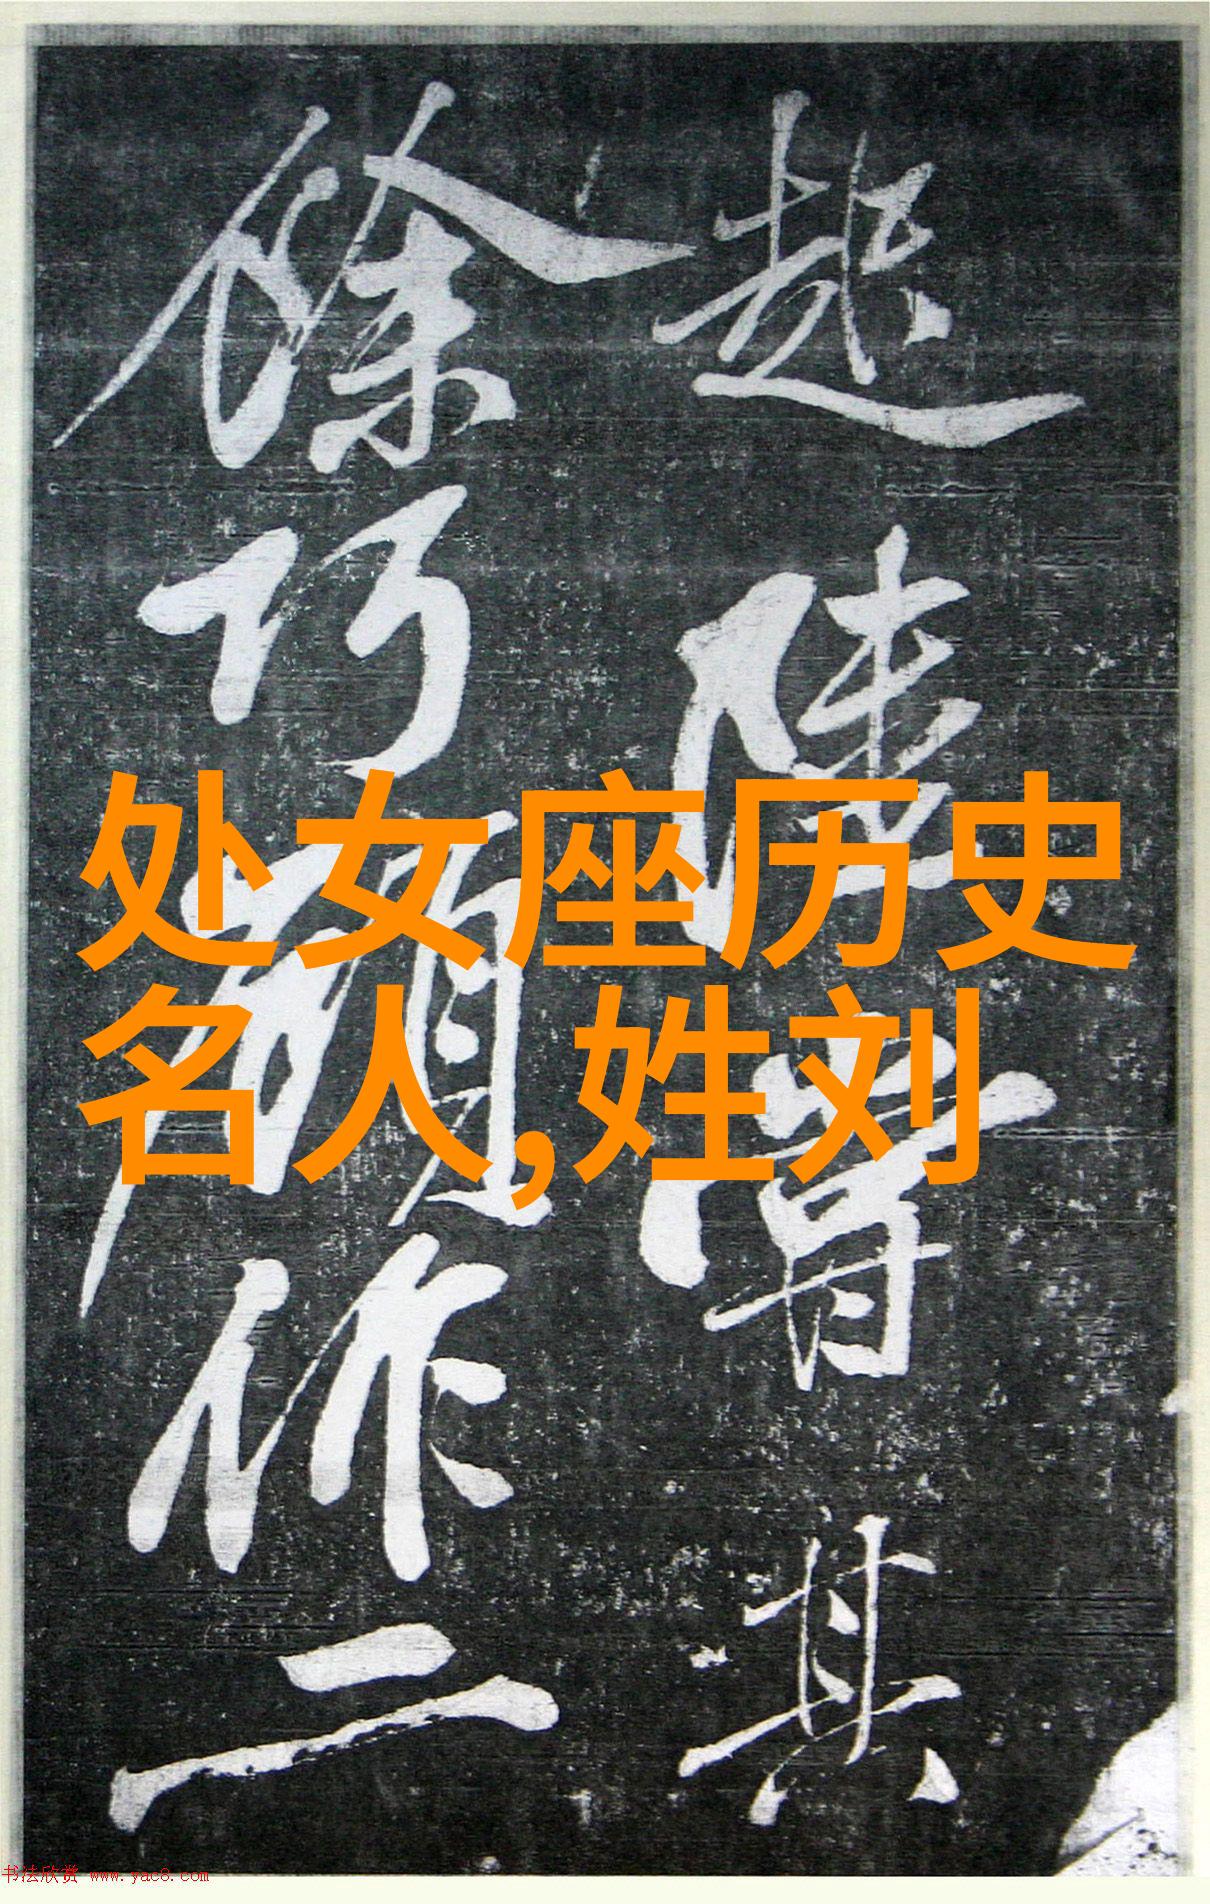 处女座历史
名人,姓刘
其
餘巧顧作二
书法欣赏 www.yac8.com